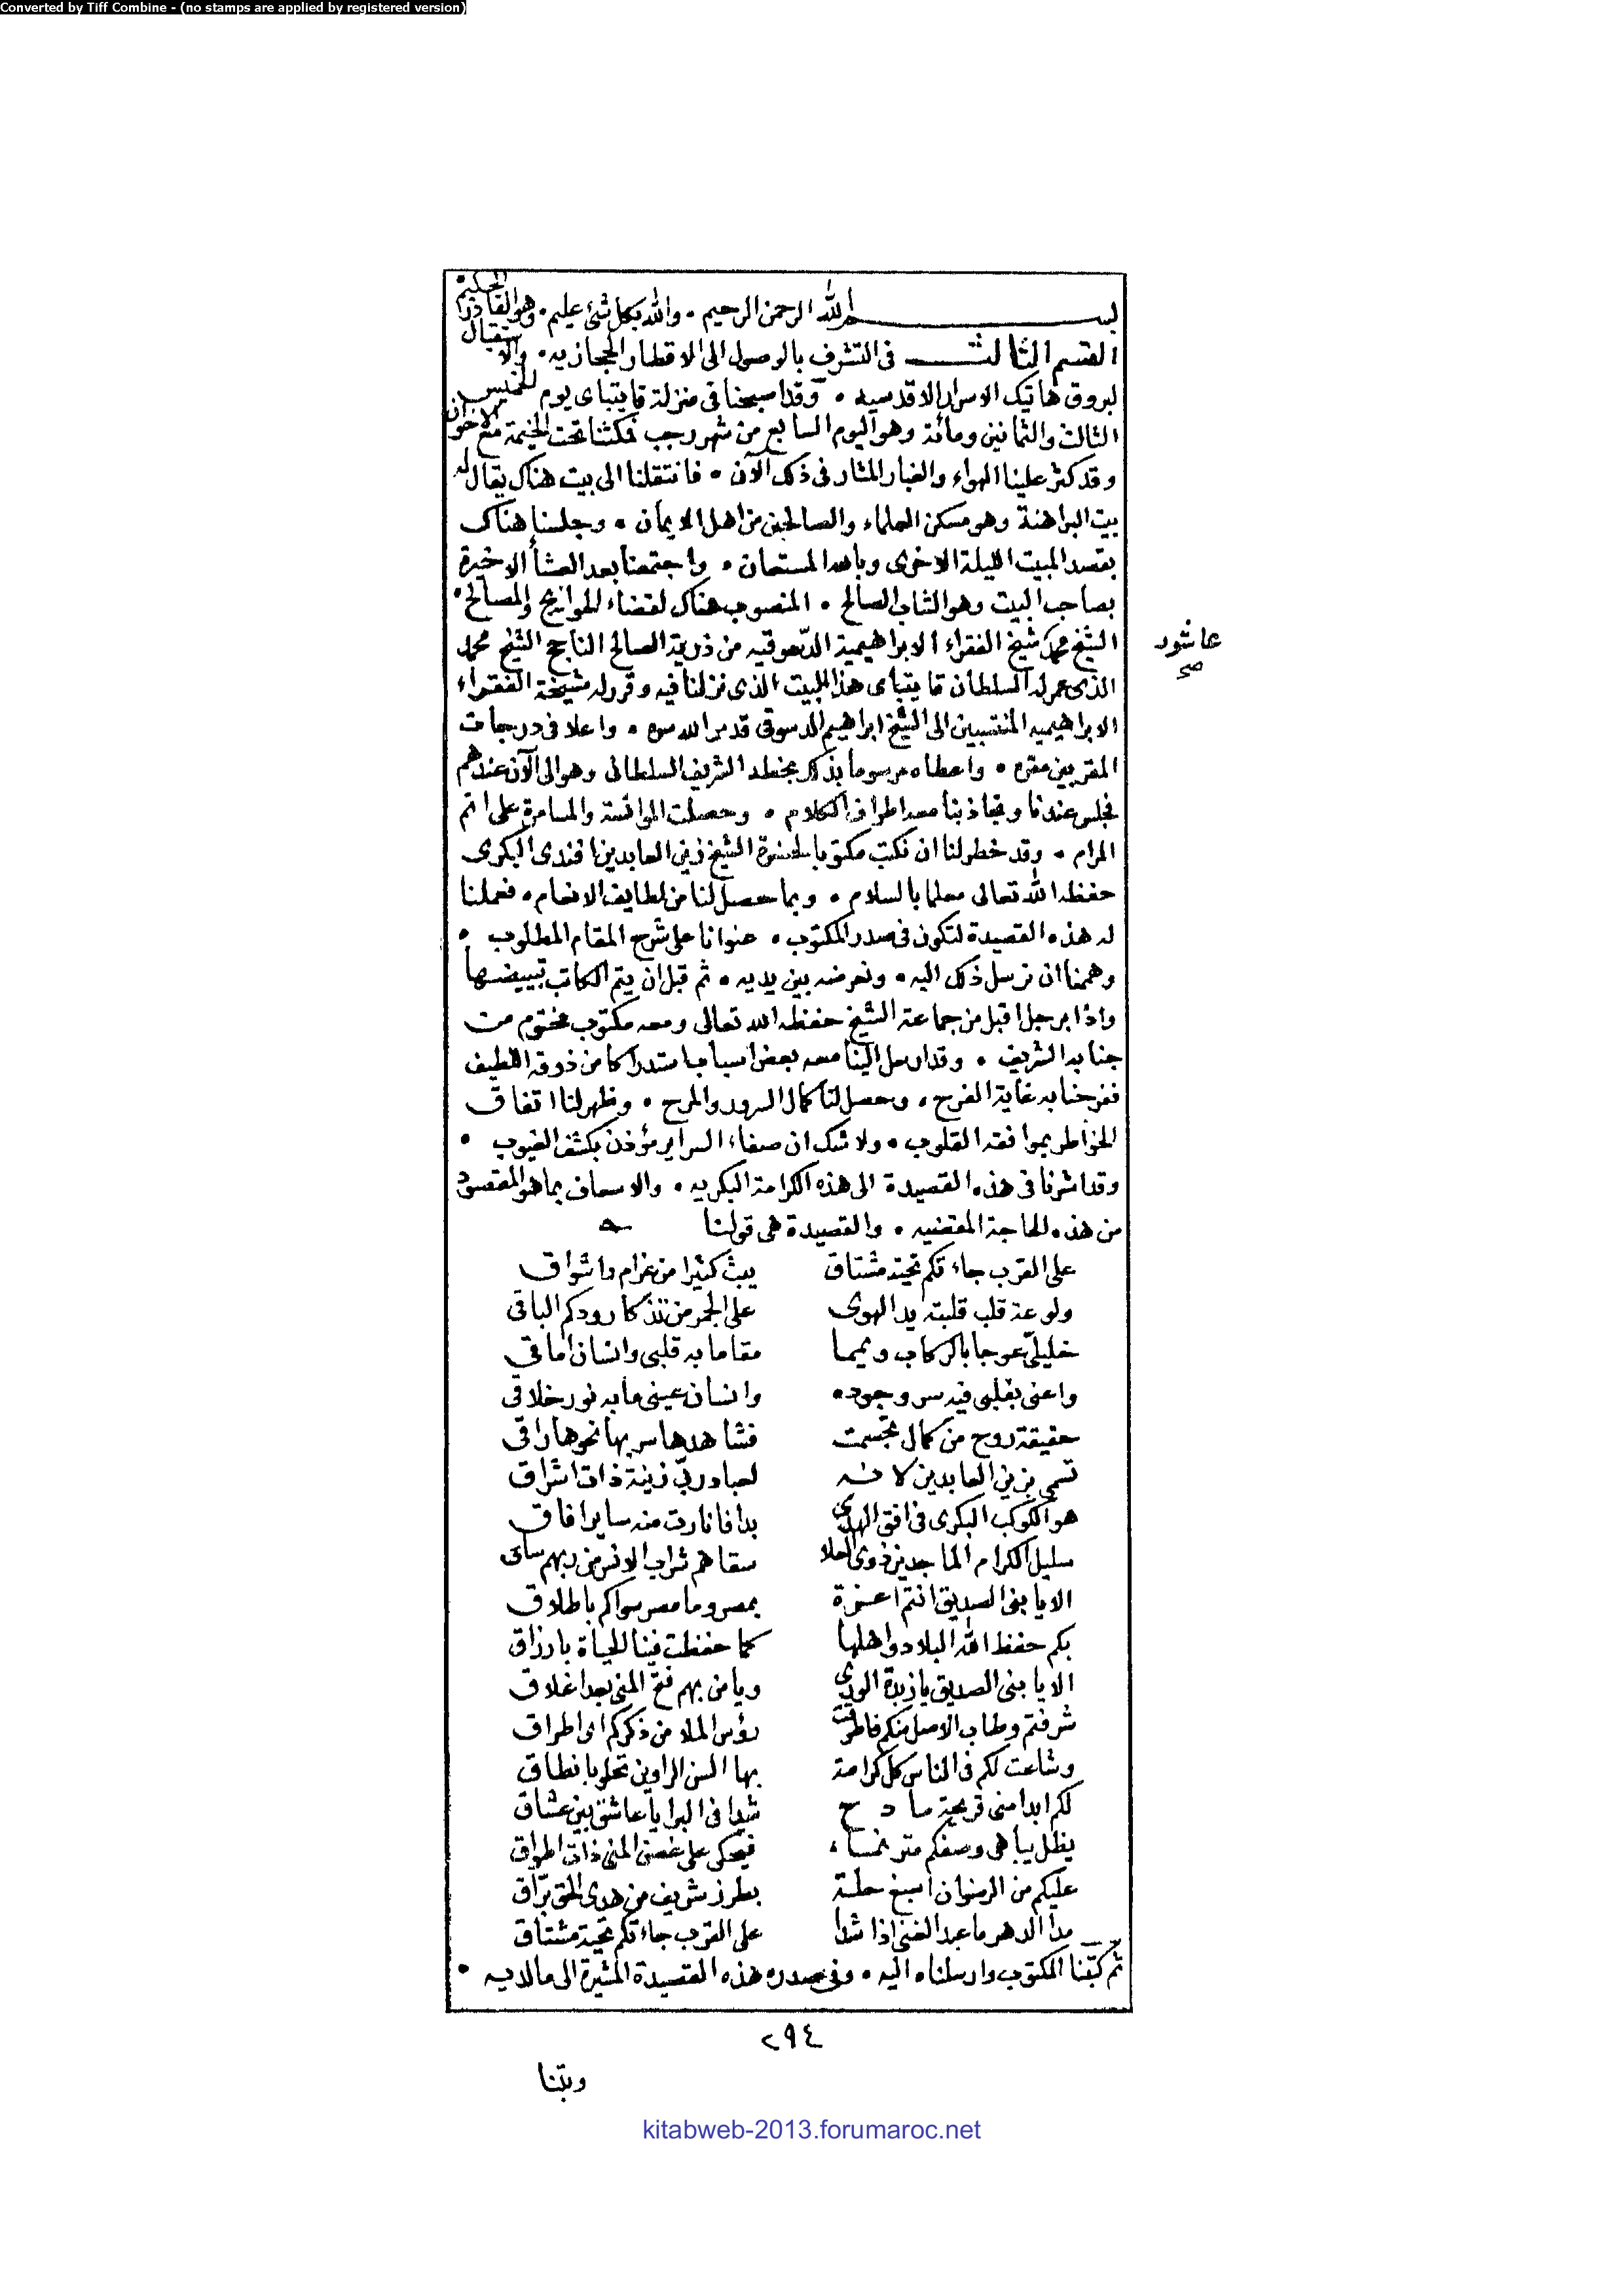 Converted by Tiff Combine - (no stamps are applied by registered version)
بسم الله الرحمن الرحيم • والله بكل شئ عليم • وهو القادر الحكيم
القسم الثالث فى التشرف بالوصول الى الاقطار الحجازيه • والاستقبال
لبروق هاتيك الاسرار الاقدسيه • وقد اصبحنا فى منزلة قايتباى يوم الخميس
الثالث والثمانين ومائة وهو اليوم السابع من شهر رجب فمكثنا تحت الخيمة مع الاخوان
وقد كثر علينا الهواء والغبار المثار فى ذلك الآن • فانتقلنا الى بيت هناك يقال له
بيت البراهنة وهو مسكن العلماء والصالحين من اهل الايمان • وجلسنا هناك
بقصد المبيت الليلة الاخرى وبالله المستعان • واجتمعنا بعد العشأ الاخيرة
بصاحب البيت وهو الشاب الصالح • المنصوب هناك لقضاء الحوايج والمصالح •
الشيخ محمد شيخ الفقراء الابراهيمية الدسوقيه من ذرية الصالح الناجح الشيخ محمد
عاشور
صح
الذى عمر له السلطان قايتباى هذا البيت الذى نزلنا فيه وقرر له مشيخة الفقراء
الابراهيميه المنتسبين الى الشيخ ابراهيم الدسوقى قدس الله سره • واعلا فى درجات
المقربين مقره • واعطاه مرسوما بذلك بخطه الشريف السلطانى وهو الى الآن عندهم
فجلس عندنا وتجاذبنا معه اطراف الكلام • وحصلت الموانسة والمسامرة على اتم
المرام • وقد خطر لنا ان نكتب مكتوبا لحضرة الشيخ زين العابدين افندى البكرى
حفظه الله تعالى معلما بالسلام • وبما حصل لنا من لطايف الانعام • فعملنا
له هذه القصيدة لتكون فى صدر المكتوب • عنوانا على شرح المقام المطلوب •
وهممنا ان نرسل ذلك اليه • ونعرضه بين يديه • ثم قبل ان يتم الكاتب تبييضها
واذا برجل اقبل من جماعة الشيخ حفظه الله تعالى ومعه مكتوب مختوم من
جنابه الشريف • وقد ارسل الينا معه بعض اسباب استدراكا من ذوقه اللطيف
ففرحنا به غاية الفرح • وحصل لنا كمال السرور والمرح • وظهر لنا اتفاق
الخواطر بموافقة القلوب • ولا شك ان صفاء السراير مؤذن بكشف الغيوب •
وقد اشرنا فى هذه القصيدة الى هذه الكرامة البكريه • والاسعاف بما هو المقصود
من هذه الحاجة المقضيه • والقصيدة هى قولنا
على القرب جاءتكم تحية مشتاق يبث كثيرا من غرام واشواق
ولوعة قلب قلبته يد الهوى على الجمر من تذكار ودكم الباقى
خليلىّ عوجا بالركاب ويمما مقاما به قلبى وانسان آماقى
واعنى بقلبى فيه سر وجوده وانسان عينى ما به نور خلاقى
حقيقة روح من كمال تجسمت فشاهدها سر بها نحوها راقى
تسمى بزين العابدين لانه لعباد ربّى زينة ذات اشراق
هو الكوكب البكرى فى افق الهدى بدا فانارت منه ساير افاق
سليل الكرام الماجدين ذوى العلا سقاهم شراب الانس من ربهم ساقى
الا يا بنى الصديق انتم اعزة بمصر وما مصر سواكم باطلاق
بكم حفظ الله البلاد واهلها كما حفظت فينا الحياة بارزاق
الا يا بنى الصديق يا زبدة الورى ويا من بهم فتح المنى بعد اغلاق
شرفتم وطاب الاصل منكم فاطرقت رؤس الملا من ذكركم اى اطراق
وشاعت لكم فى الناس كل كرامة بها السن الراوين تحلو بانطاق
لكم ابدا منى قريحة مادح شدا فى البرايا عاشق بين عشاق
يظل يباهى وصفكم مترنما فيحكى على غصن المنى ذات اطواق
عليكم من الرضوان اسبغ حلة بطرز شريف من هدى الحق برّاق
مدا الدهر ما عبد الغنى اذا شدا على القرب جاءتكم تحية مشتاق
ثم كتبنا المكتوب وارسلناه اليه • وفى صدره هذه القصيدة المشيرة الى ما لديه •
٢٩٤
وبتنا
kitabweb-2013.forumaroc.net